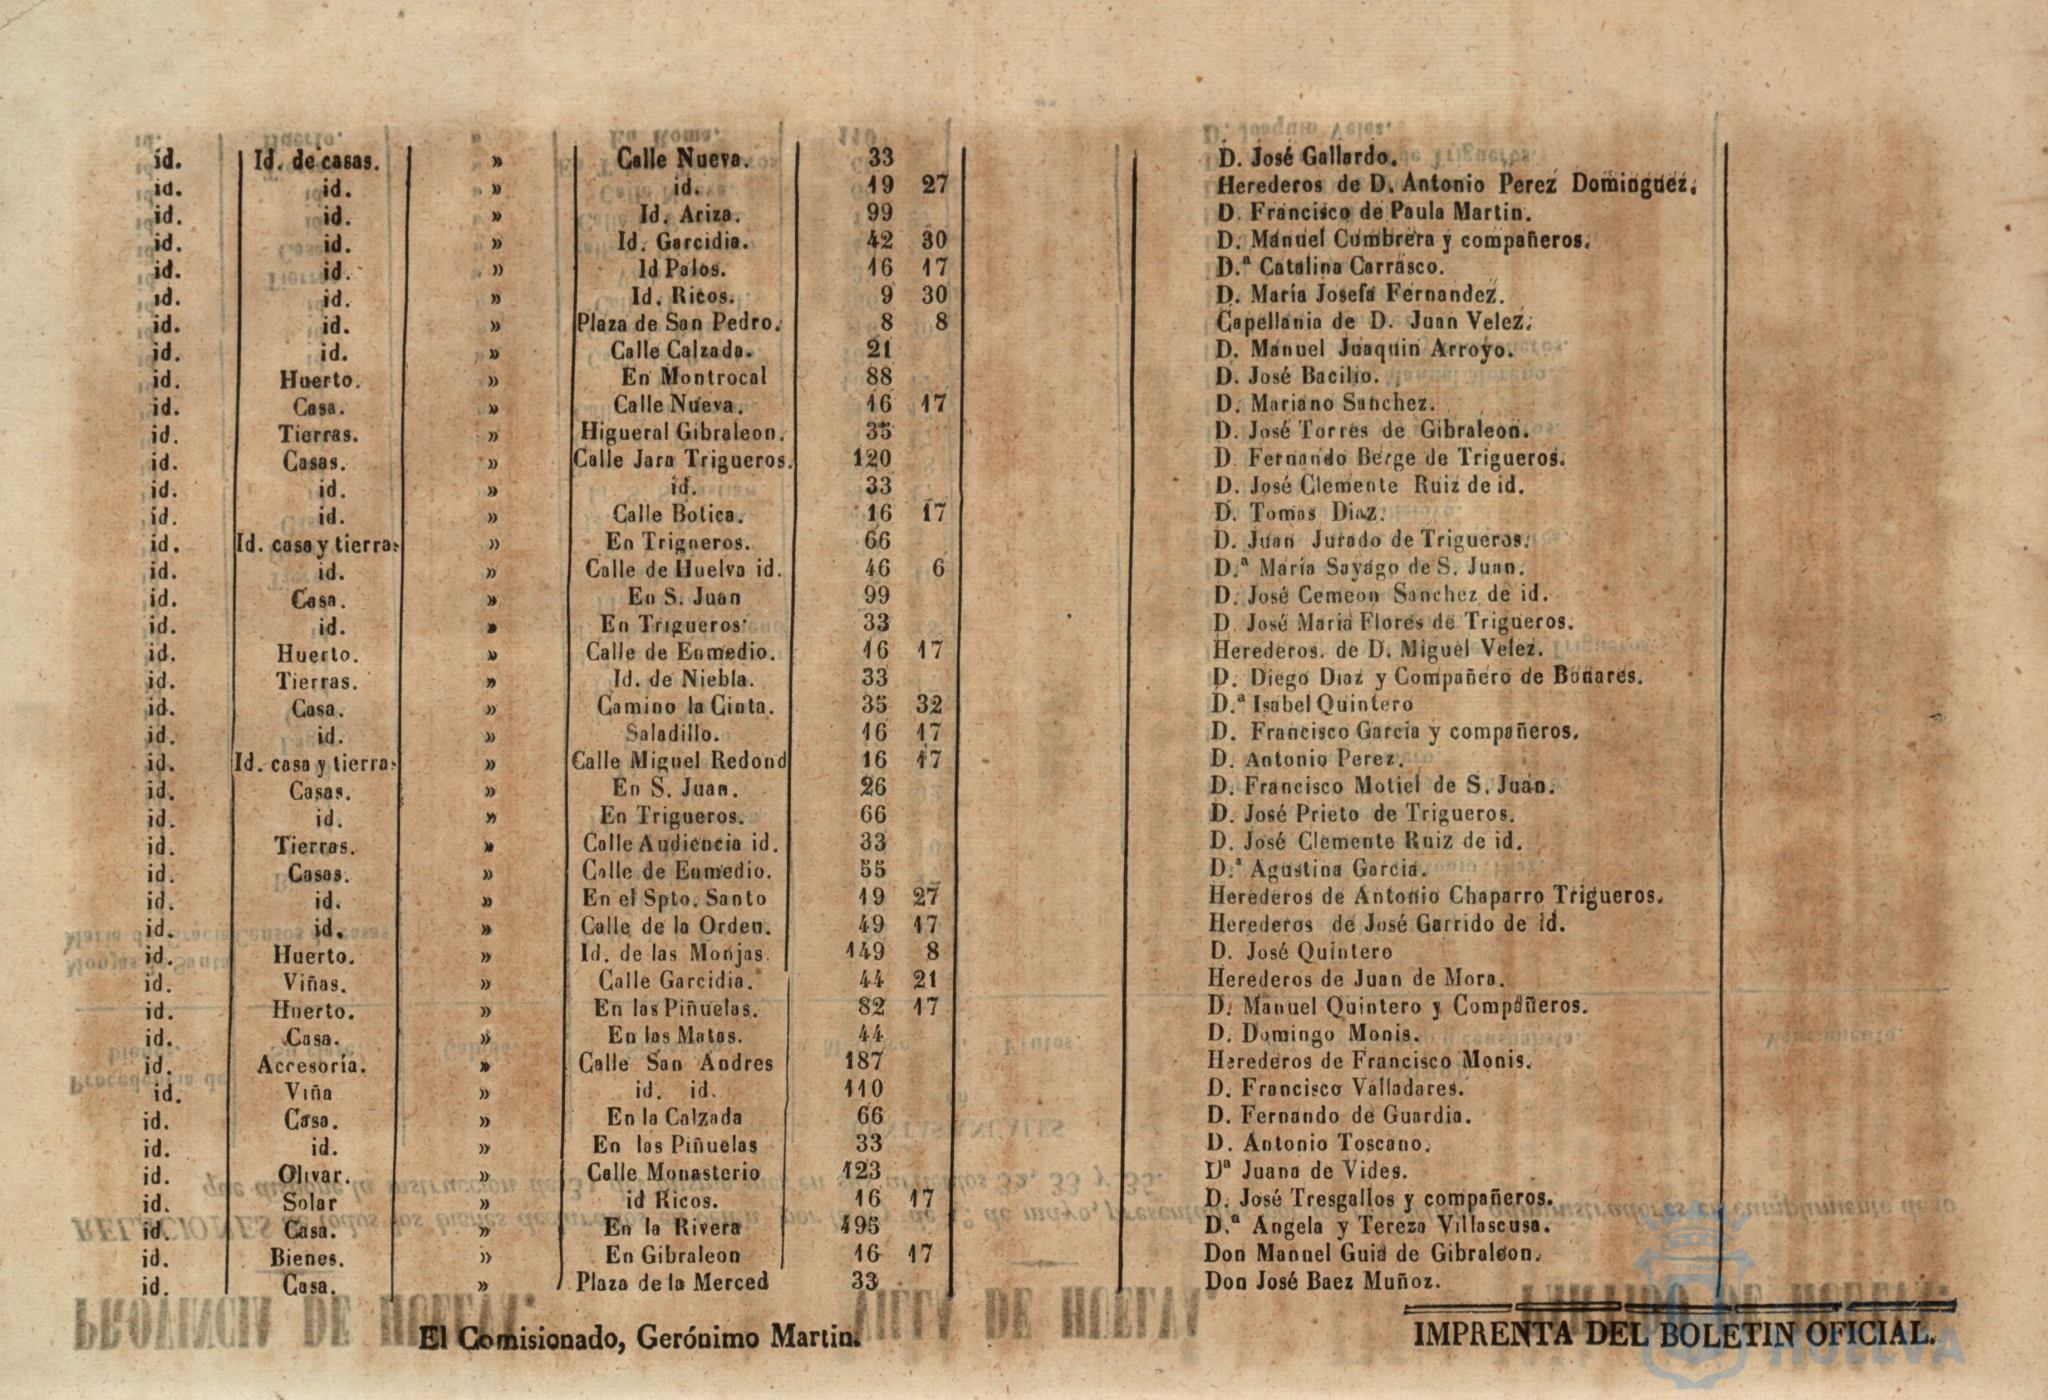 id. Id. de casas. » Calle Nueva. 33 D. José Gallardo.
id. id. » id. 19 27 Herederos de D. Antonio Perez Dominguez.
id. id. » Id. Ariza. 99 D. Francisco de Paula Martin.
id. id. » Id. Garcidia. 42 30 D. Manuel Cumbrera y compañeros.
id. id. » Id Palos. 16 17 D.ª Catalina Carrasco.
id. id. » Id. Ricos. 9 30 D. María Josefa Fernandez.
id. id. » Plaza de San Pedro. 8 8 Capellania de D. Juan Velez.
id. id. » Calle Calzada. 21 D. Manuel Joaquin Arroyo.
id. Huerto. » En Montrocal 88 D. José Bacilio.
id. Casa. » Calle Nueva. 16 17 D. Mariano Sanchez.
id. Tierras. » Higueral Gibraleon. 35 D. José Torres de Gibraleon.
id. Casas. » Calle Jara Trigueros. 120 D. Fernando Berge de Trigueros.
id. id. » id. 33 D. José Clemente Ruiz de id.
id. id. » Calle Botica. 16 17 D. Tomas Diaz.
id. Id. casa y tierra. » En Trigueros. 66 D. Juan Jurado de Trigueros.
id. id. » Calle de Huelva id. 46 6 D.ª María Sayago de S. Juan.
id. Casa. » En S. Juan 99 D. José Cemeon Sanchez de id.
id. id. » En Trigueros 33 D. José Maria Flores de Trigueros.
id. Huerto. » Calle de Enmedio. 16 17 Herederos. de D. Miguel Velez.
id. Tierras. » Id. de Niebla. 33 D. Diego Diaz y Compañero de Bonares.
id. Casa. » Camino la Cinta. 35 32 D.ª Isabel Quintero
id. id. » Saladillo. 16 17 D. Francisco García y compañeros.
id. Id. casa y tierra. » Calle Miguel Redond 16 17 D. Antonio Perez.
id. Casas. » En S. Juan. 26 D. Francisco Motiel de S. Juan.
id. id. » En Trigueros. 66 D. José Prieto de Trigueros.
id. Tierras. » Calle Audiencia id. 33 D. José Clemente Ruiz de id.
id. Casas. » Calle de Enmedio. 55 D.ª Agustina Garcia.
id. id. » En el Spto. Santo 19 27 Herederos de Antonio Chaparro Trigueros.
id. id. » Calle de la Orden. 49 17 Herederos de José Garrido de id.
id. Huerto. » Id. de las Monjas. 149 8 D. José Quintero
id. Viñas. » Calle Garcidia. 44 21 Herederos de Juan de Mora.
id. Huerto. » En las Piñuelas. 82 17 D. Manuel Quintero y Compañeros.
id. Casa. » En las Matas. 44 D. Domingo Monis.
id. Accesoría. » Calle San Andres 187 Herederos de Francisco Monis.
id. Viña » id. id. 110 D. Francisco Valladares.
id. Casa. » En la Calzada 66 D. Fernando de Guardia.
id. id. » En las Piñuelas 33 D. Antonio Toscano.
id. Olivar. » Calle Monasterio 123 Dª Juana de Vides.
id. Solar » id Ricos. 16 17 D. José Tresgallos y compañeros.
id. Casa. » En la Rivera 495 D.ª Angela y Tereza Villascusa.
id. Bienes. » En Gibraleon 16 17 Don Manuel Guia de Gibraleon.
id. Casa. » Plaza de la Merced 33 Don José Baez Muñoz.
El Comisionado, Gerónimo Martin.
IMPRENTA DEL BOLETIN OFICIAL.
HUELVA